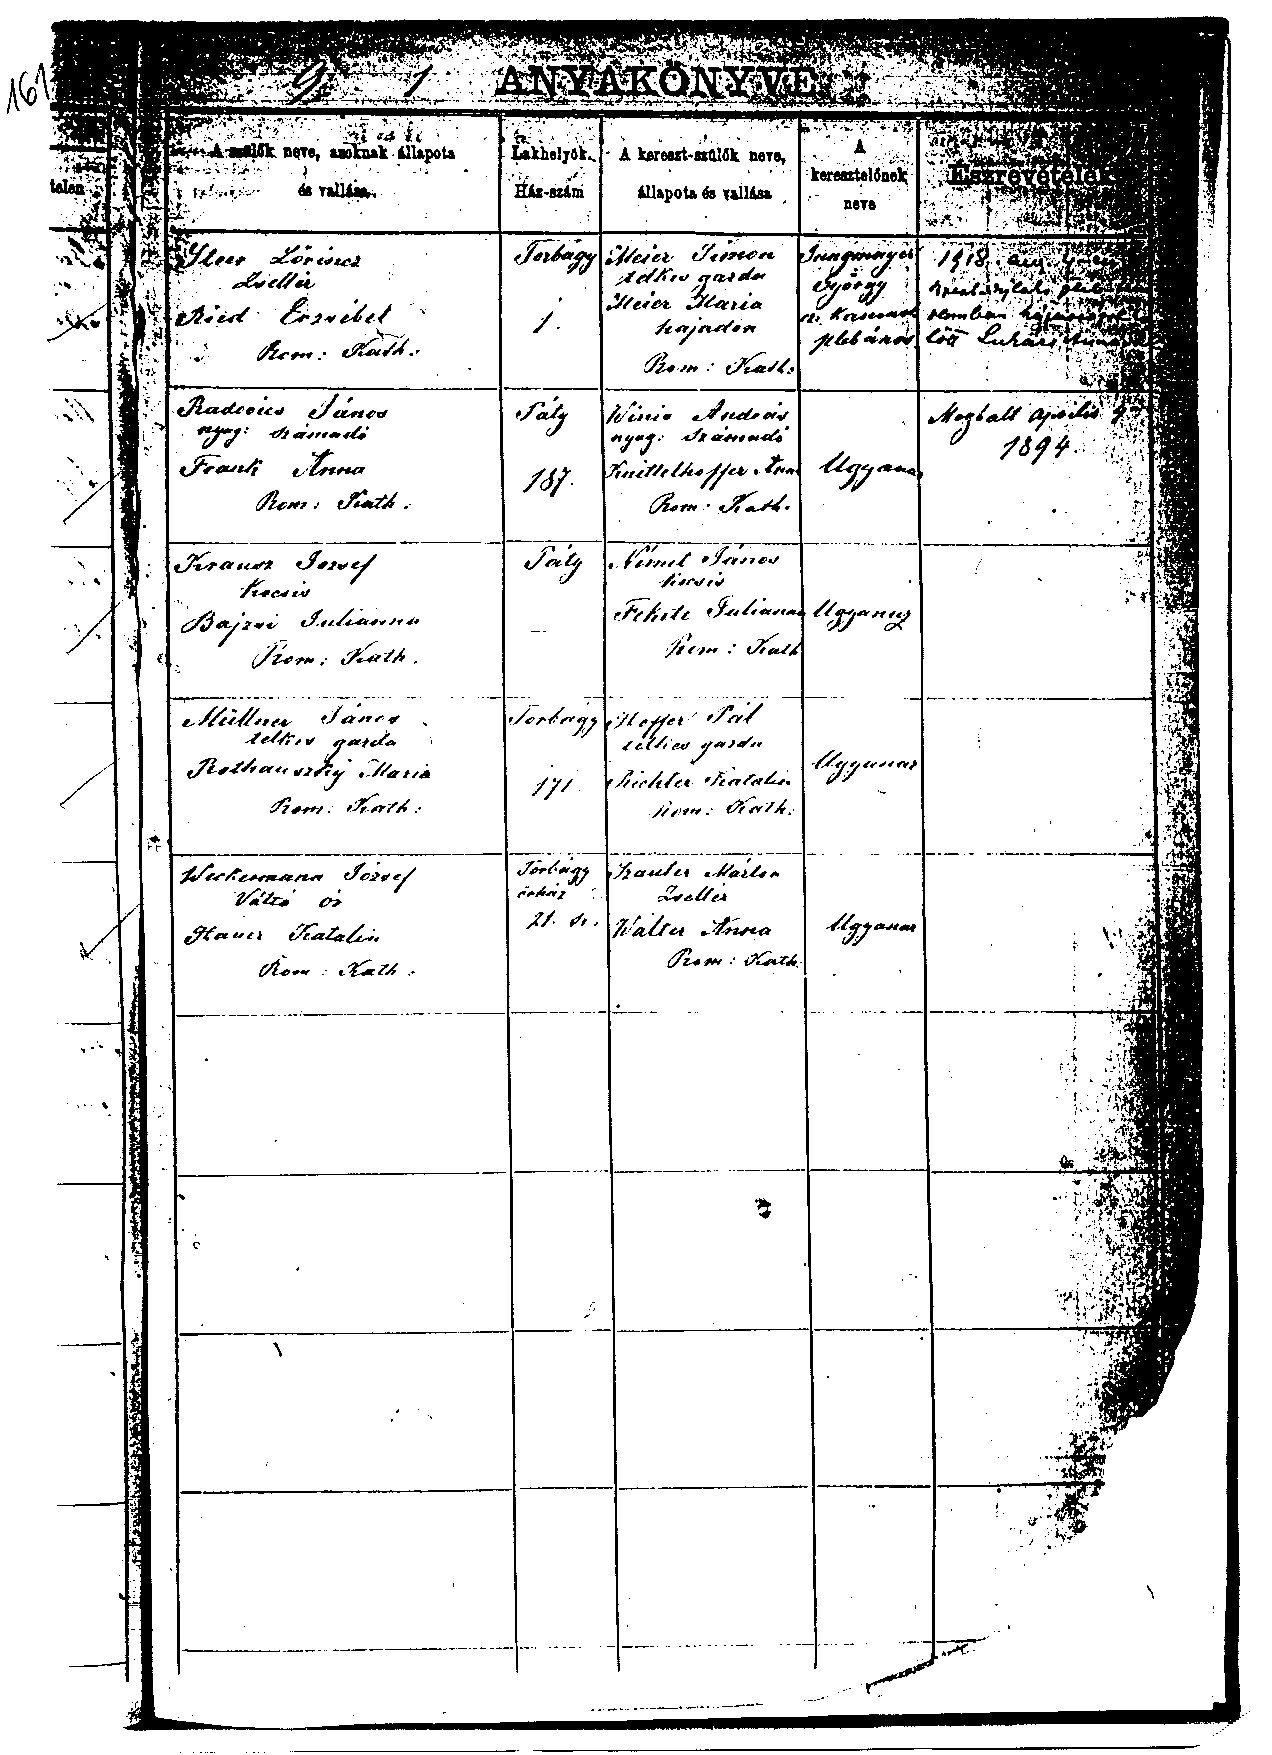 161
9 1 ANYAKÖNYVE
talen
A szülők neve, azoknak állapota
és vallása.
Lakhelyök.
Ház-szám
A kereszt-szülők neve,
állapota és vallása
A
keresztelőnek
neve
Észrevételek
Lőrincz
Zsellér
Ried Erzsébet
Rom: Kath.
Torbágy
1.
Meier Simon
telkes gazda
Meier Maria
hajadon
Rom: Kath.
Jungmayer
György
plébános
1918. aug.
Radovics János
nyug: számadó
Frank Anna
Rom: Kath.
Páty
187.
András
nyug: számadó
Knittelhoffer Anna
Rom. Kath.
Ugyanaz
Meghalt április 9
1894
Krausz József
Kocsis
Bajzsi Julianna
Rom: Kath.
Páty
—
Német János
kocsis
Fekete Julianna
Rom: Kath
Ugyanaz
Müllner János
telkes gazda
Rothauszky Maria
Rom: Kath:
Torbágy
171
Hoffer Pál
telkes gazda
Richter Katalin
Rom: Kath:
Ugyanaz
Weckermann József
Váltó őr
Hauer Katalin
Rom: Kath:
Torbágy
őrház
21. sz.
Krauter Márton
Zsellér
Walter Anna
Rom: Kath.
Ugyanaz